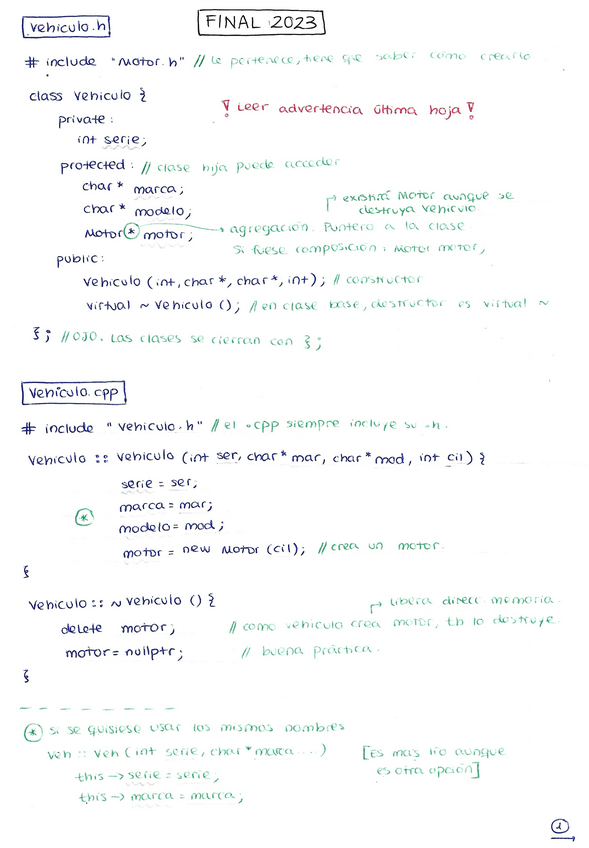 vehiculo.h
FINAL 2023
# include "Motor.h" // le pertenece, tiene que saber como crearlo
class vehiculo {
! Leer advertencia última hoja !
private:
int serie;
protected: // clase hija puede acceder
char* marca;
char* modelo;
existirá Motor aunque se
destruya vehiculo
Motor* motor; → agregación. Puntero a la clase
Si fuese composición: Motor motor;
public:
vehiculo (int, char*, char*, int); // constructor
virtual ~ vehiculo (); // en clase base, destructor es virtual ~
}; // OJO. Las clases se cierran con };
vehiculo.cpp
# include "vehiculo.h" // el .cpp siempre incluye su .h.
vehiculo :: vehiculo (int ser, char* mar, char* mod, int cil) {
serie = ser;
* marca = mar;
modelo = mod;
motor = new Motor (cil); // crea un motor.
}
vehiculo :: ~ vehiculo () {
libera direcc memoria.
delete motor; // como vehiculo crea motor, tb lo destruye.
motor = nullptr; // buena práctica.
}
* si se quisiese usar los mismos nombres
veh :: veh (int serie, char* marca ...) [Es mas lio aunque
this -> serie = serie; es otra opción]
this -> marca = marca;
1